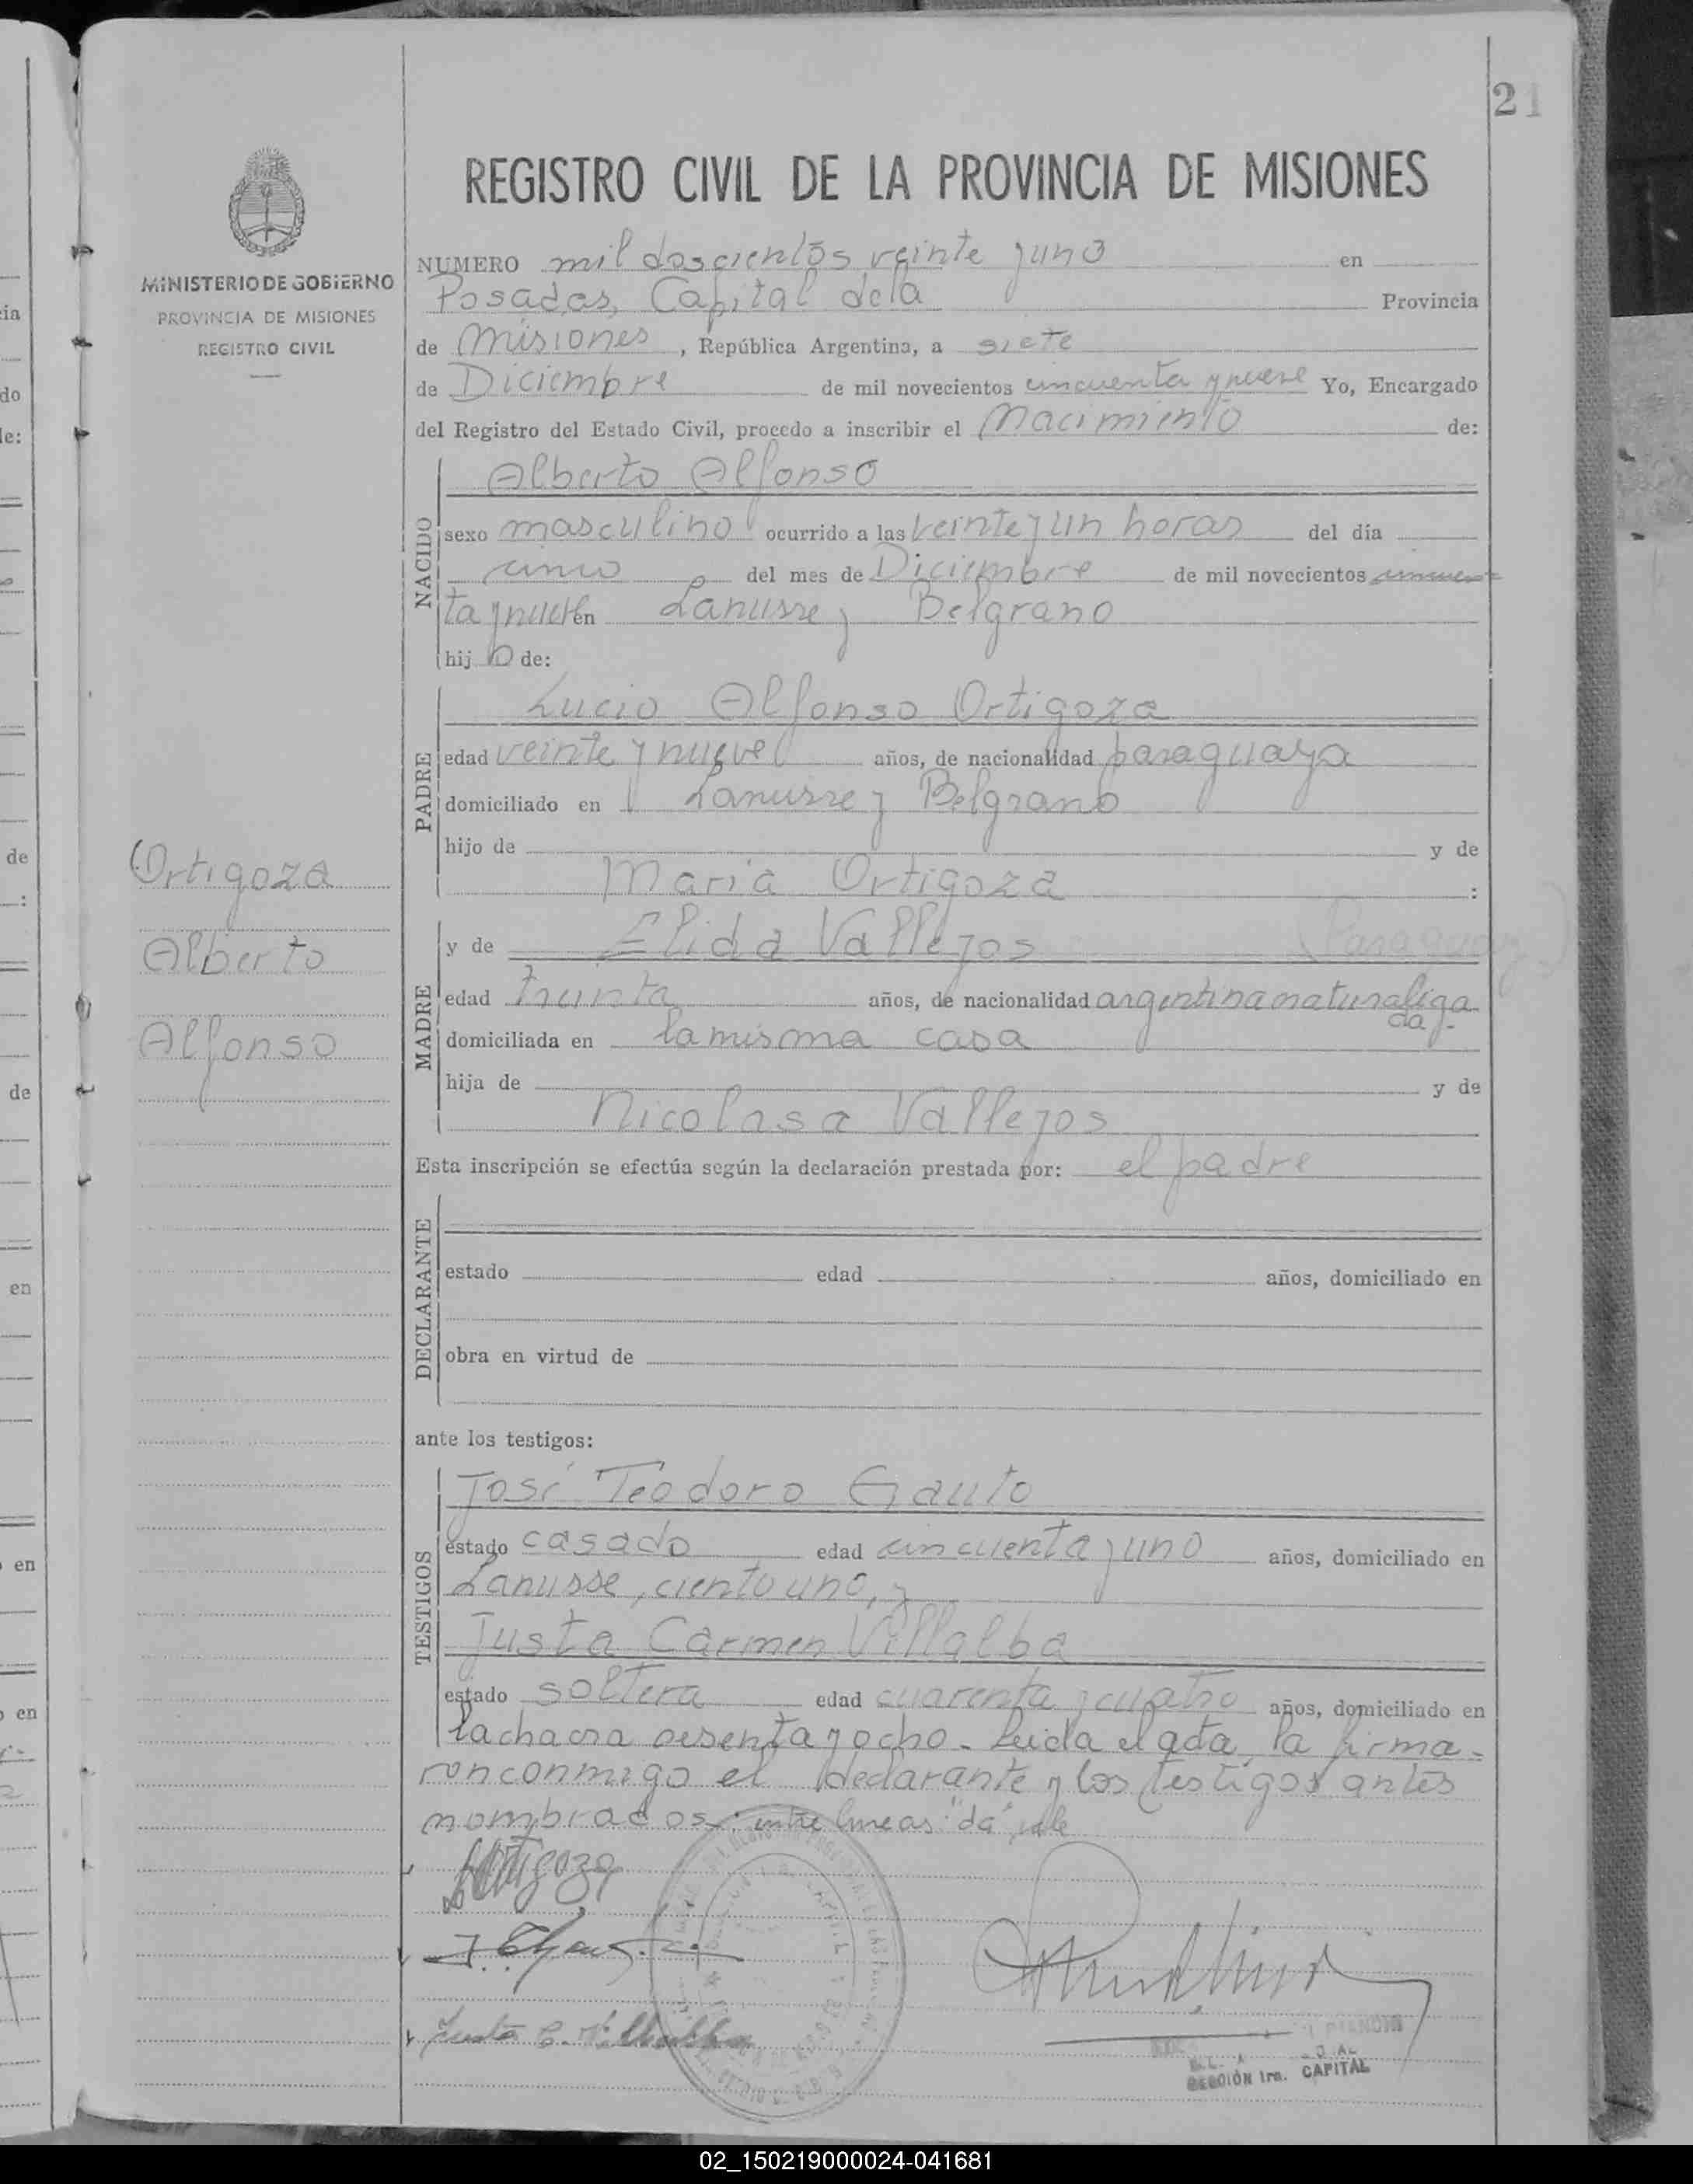 21
REGISTRO CIVIL DE LA PROVINCIA DE MISIONES
MINISTERIO DE GOBIERNO
PROVINCIA DE MISIONES
REGISTRO CIVIL
NUMERO mil doscientos veinte y uno en
Posadas, Capital de la Provincia
de Misiones, República Argentina, a siete
de Diciembre de mil novecientos cincuenta y nueve Yo, Encargado
del Registro del Estado Civil, procedo a inscribir el Nacimiento de:
NACIDO
Alberto Alfonso
sexo masculino ocurrido a las veinte y un horas del día
cinco del mes de Diciembre de mil novecientos cincuen
ta y nueve en Lanusse y Belgrano
hijo de:
PADRE
Lucio Alfonso Ortigoza
edad veinte y nueve años, de nacionalidad paraguaya
domiciliado en Lanusse y Belgrano
hijo de y de
Maria Ortigoza :
Ortigoza
Alberto
Alfonso
MADRE
y de Elida Vallejos (Paraguay)
edad treinta años, de nacionalidad argentina naturaliza
da.
domiciliada en la misma casa
hija de y de
Nicolasa Vallejos
Esta inscripción se efectúa según la declaración prestada por: el padre
DECLARANTE
estado edad años, domiciliado en
obra en virtud de
ante los testigos:
TESTIGOS
José Teodoro Gauto
estado casado edad cincuenta y uno años, domiciliado en
Lanusse, ciento uno, y
Justa Carmen Villalba
estado soltera edad cuarenta y cuatro años, domiciliado en
la chacra sesenta y ocho. Leida el acta, la firma-
ron conmigo el declarante y los testigos antes
nombrados: entre lineas: "da", vale
Ortigoza
Justa C. Villalba
SECCIÓN 1ra. CAPITAL
02_150219000024-041681